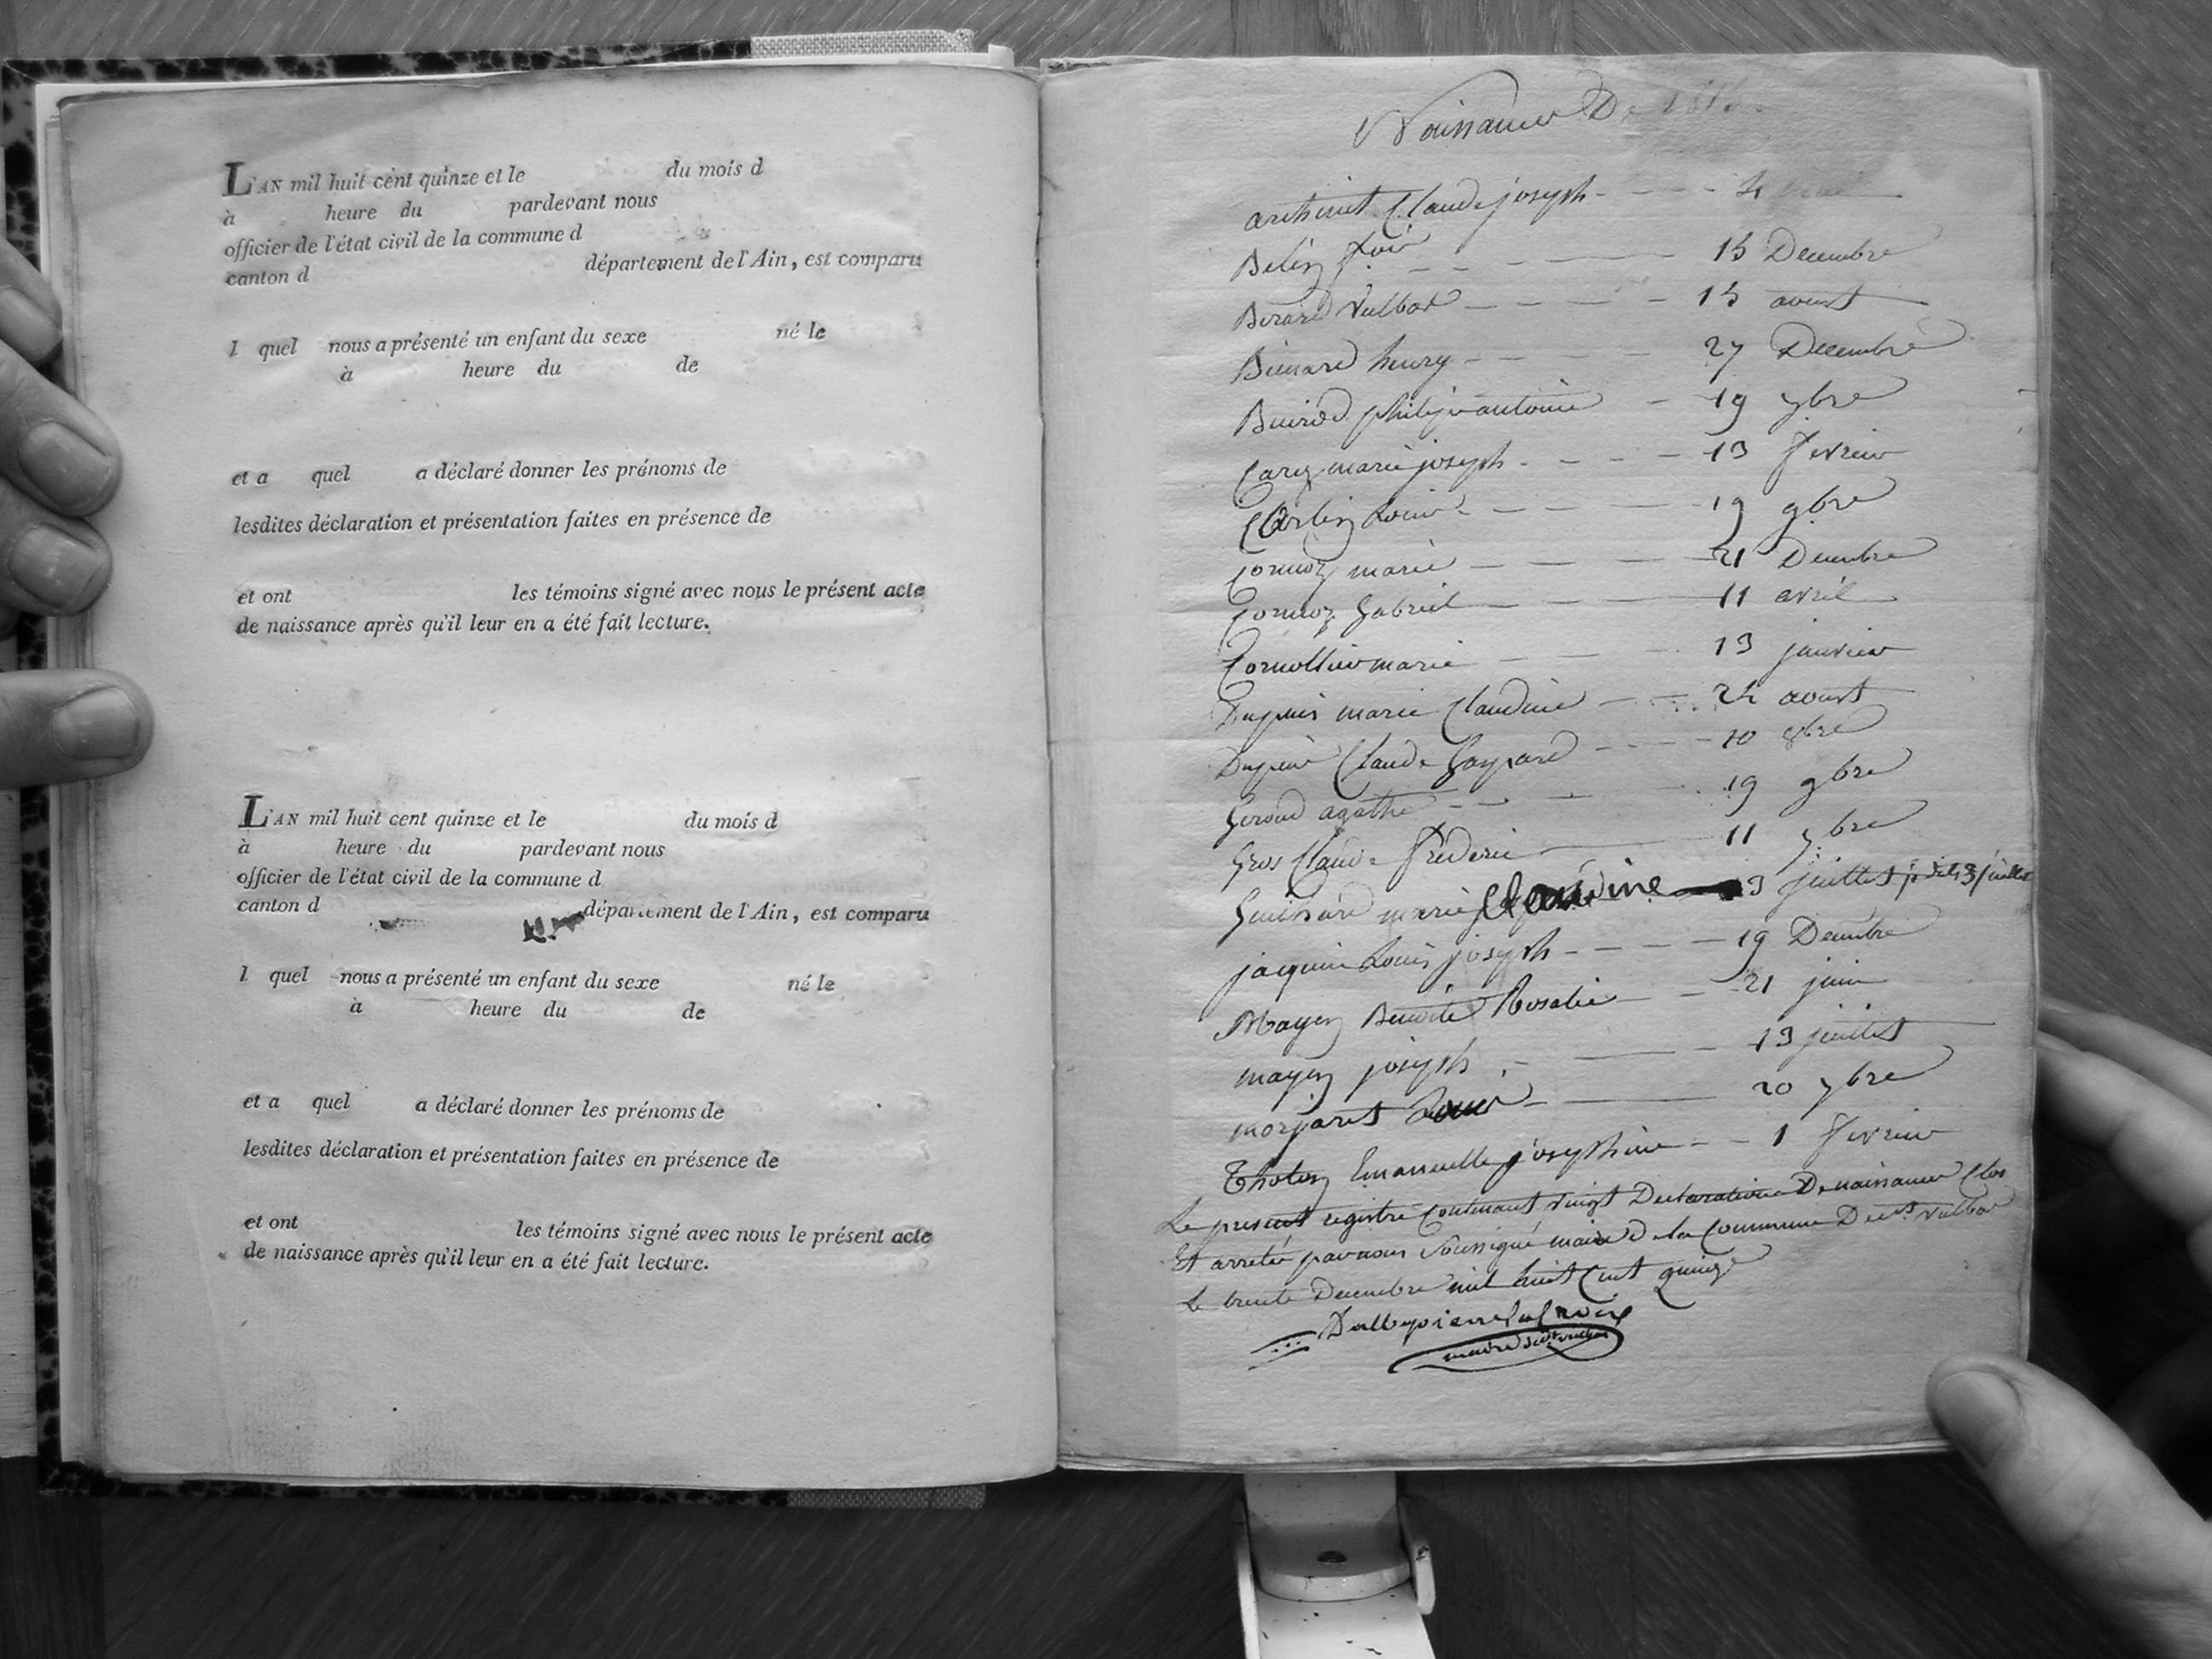 L'AN mil huit cent quinze et le du mois d
à heure du pardevant nous
officier de l'état civil de la commune d
canton d département de l'Ain, est comparu
l quel nous a présenté un enfant du sexe né le
à heure du de
et a quel a déclaré donner les prénoms de
lesdites déclaration et présentation faites en présence de
et ont les témoins signé avec nous le présent acte
de naissance après qu'il leur en a été fait lecture.
L'AN mil huit cent quinze et le du mois d
à heure du pardevant nous
officier de l'état civil de la commune d
canton d département de l'Ain, est comparu
l quel nous a présenté un enfant du sexe né le
à heure du de
et a quel a déclaré donner les prénoms de
lesdites déclaration et présentation faites en présence de
et ont les témoins signé avec nous le présent acte
de naissance après qu'il leur en a été fait lecture.
Naissances De
Claude joseph
Decembre
Berard Vulbas aoust
henry 27 Decembre
philipe antoine 19 7bre
marie joseph 13 fevrier
Louis 19 9bre
Cormoz marie 21 Decembre
Cormoz Gabriel 11 avril
marie 13 janvier
Dupuis marie Claudine 24 aoust
Dupuis Claude Gaspard 8bre
agathe 19 9bre
Gros Claude frederic 11 7bre
marie Claudine 3 juillet
jacquin Louis joseph 19 Decembre
Mayen Benoite Rosalie 21 juin
mayen joseph 13 juillet
morjaret 20 7bre
Emanuelle josephine 1 fevrier
Le present registre Contenant vingt Declarations De naissances Clos
Et arretée par nous soussigné maire De la Commune De st vulbas
Le trente Decembre mil huit Cent quinze
maire de st vulbas